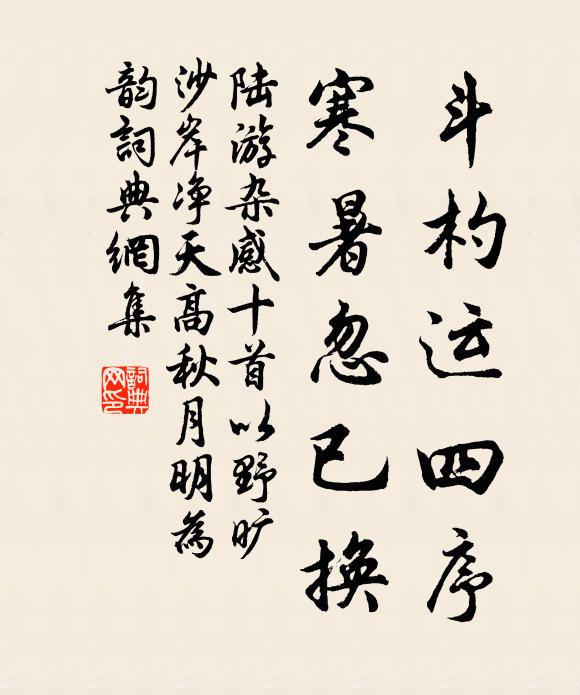 斗杓运四序
寒暑忽已换
陆游杂感十首以野旷
沙岸净天高秋月明為
韵詞典網集
詞典
网印